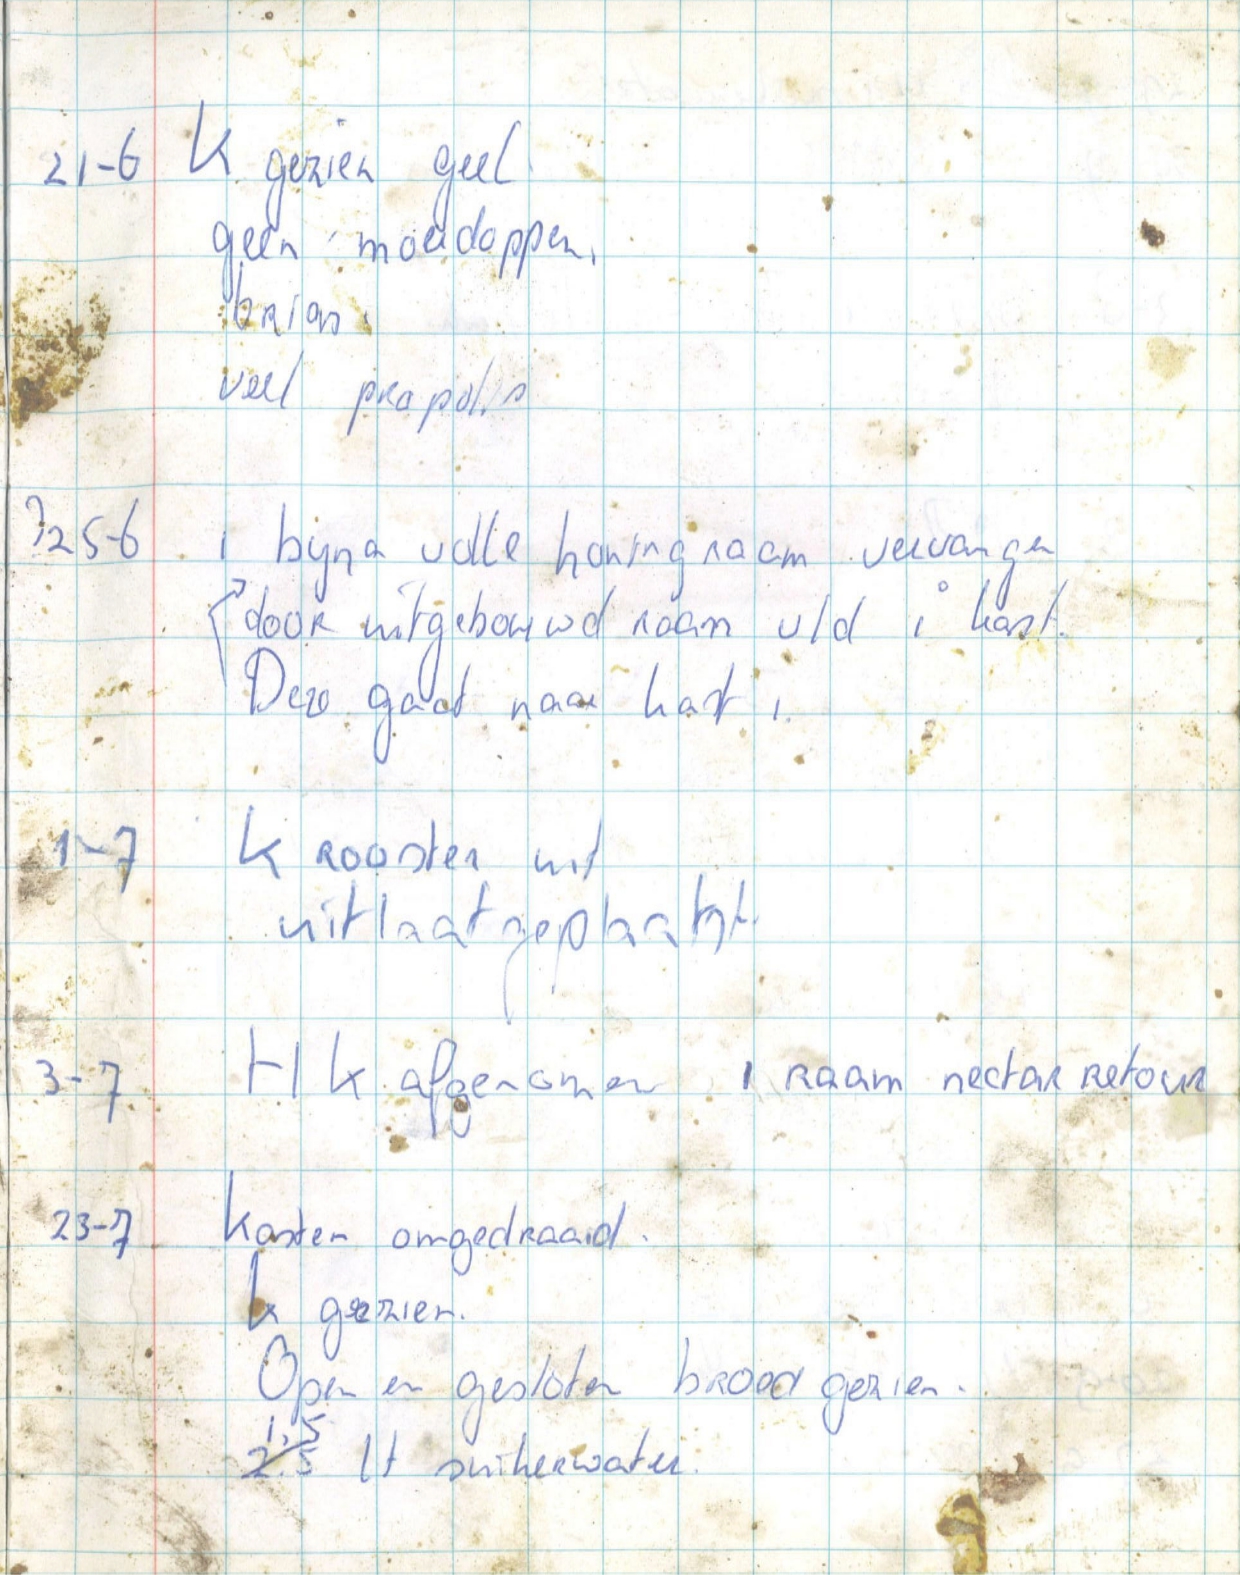 21-6 K gezien geel.
geen moerdoppen.
brias.
veel propolis
?25-6 1 byna volle honingraam vervangen
door uitgebouwd raam v/d 1° kast.
Deze gaat naar kast 1.
1-7 K rooster uit
uitlaat geplaatst.
3-7 HK afgenomen 1 raam nectar retour
23-7 Kasten omgedraaid.
K gezien.
Open en gesloten broed gezien.
1,5
2.5 lt suikerwater.